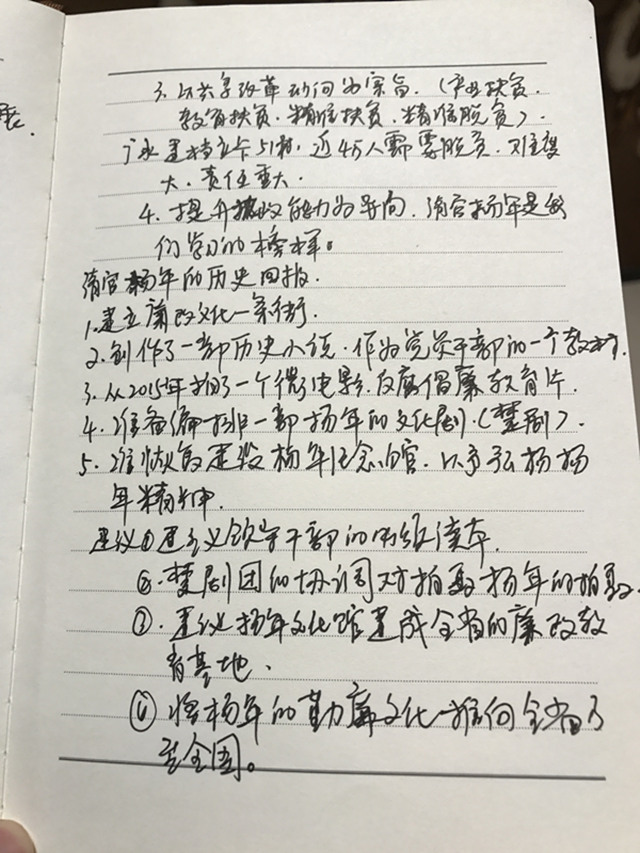 展.
3. 以共享改革动向为宗旨.（产业扶贫.
教育扶贫.精准扶贫.精准脱贫）.
广水是档立卡51村,近4万人需要脱贫.难度
大.责任重大.
4. 提升执政能力为导向.清官杨年是我
们学习的榜样。
清官杨年的历史回报.
1.建立廉政文化一条街.
2.创作了一部历史小说.作为党员干部的一个教材.
3.从2015年拍了一个微电影.反腐倡廉教育片.
4.准备编排一部杨年的文化剧.（楚剧）.
5.准恢复建设杨年纪念馆.以方弘扬杨
年精神.
建议①建立领导干部的两级读本.
②.楚剧团的协调对拍夏杨年的拍
③.建议杨年文化馆建成全省的廉政教
育基地.
④将杨年的勤廉文化推向全省乃
至全国。